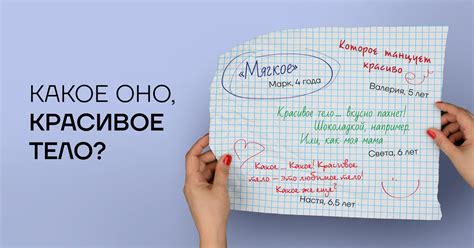 КАКОЕ ОНО,
КРАСИВОЕ
ТЕЛО?
«Мягкое»
Марк, 4 года
Которое танцует
красиво
Валерия, 5 лет
Красивое тело... вкусно пахнет!
Шоколадкой, например.
Или, как моя мама
Света, 6 лет
Какое... Какое! Красивое
тело – это любимое тело!
Какое же ещё?
Настя, 6,5 лет